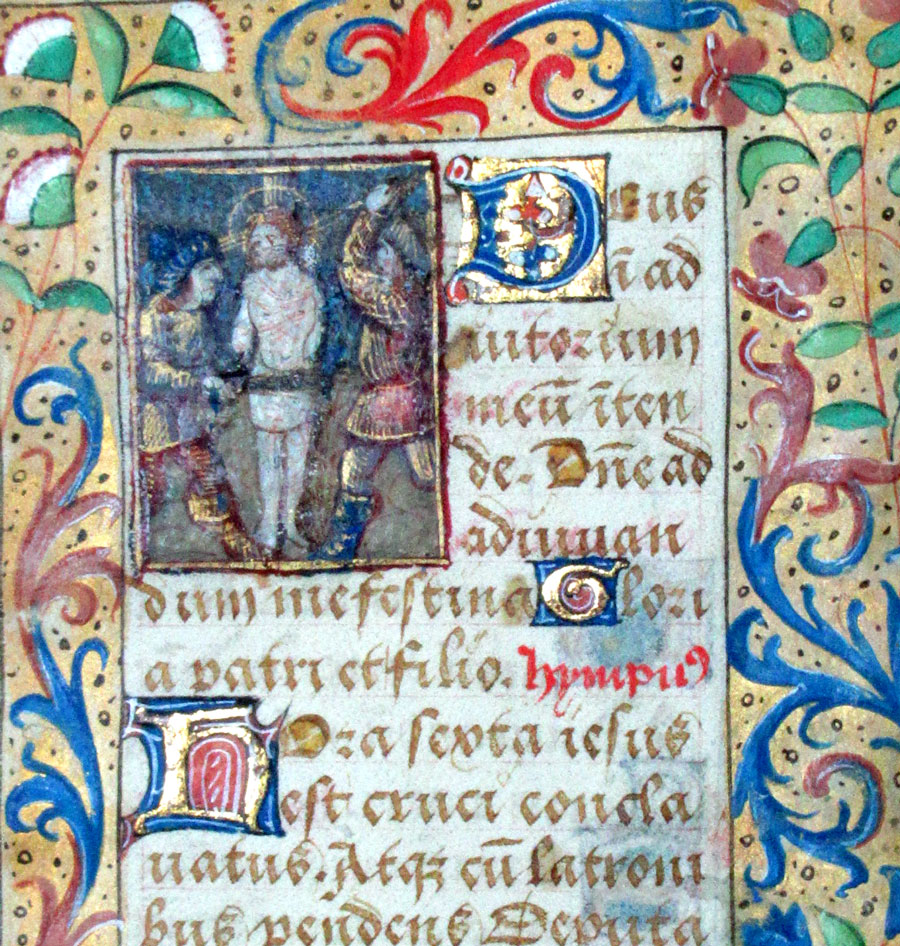 Deus
ī ad
iutorium
meū īten
de. Dñe ad
adiuuan
dum me festina Glori
a patri et filio. hympnus
hora sexta iesus
est cruci concla
uatus. Atqꝫ cū latroni
bus pendens Deputa